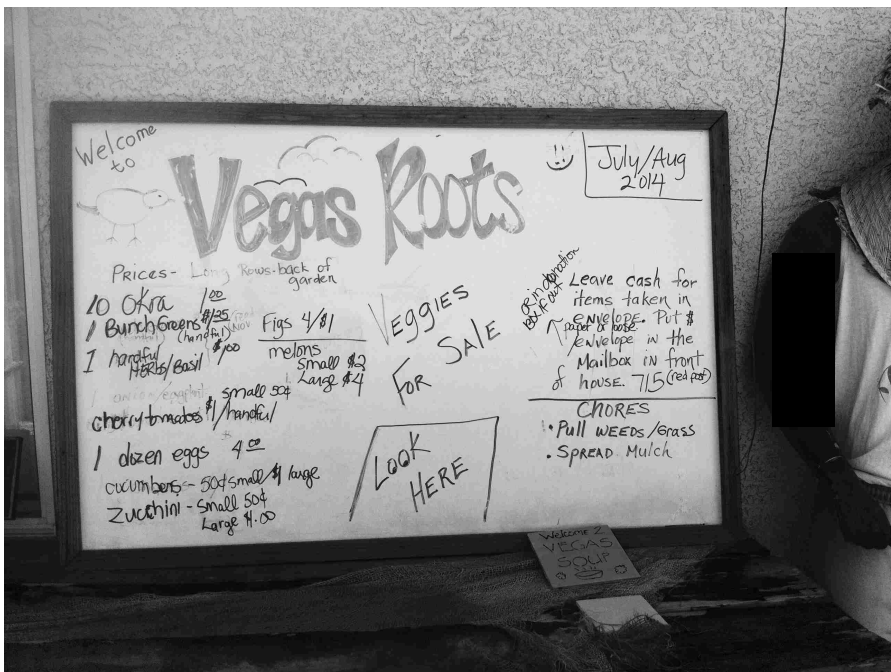 Welcome
to
Vegas Roots
July/Aug
2014
Prices- Long Rows-back of
garden
10 Okra 1.00
1 Bunch Greens $1.25
(handful)
1 handful $1.00
HERBS/Basil
small 50¢
cherry tomatoes $1/handful
1 dozen eggs 4.00
cucumbers- 50¢ small/$1 large
Zucchini - Small 50¢
Large $1.00
Figs 4/$1
melons
Small $2
Large $4
VEGGIES
FOR SALE
LOOK
HERE
or in donation
box if out
Leave cash for
items taken in
envelope. Put $
paper or loose
/envelope in the
Mailbox in front
of house. 715 (red post)
CHORES
• Pull WEEDS/Grass
• SPREAD Mulch
Welcome 2
VEGAS
SOUP